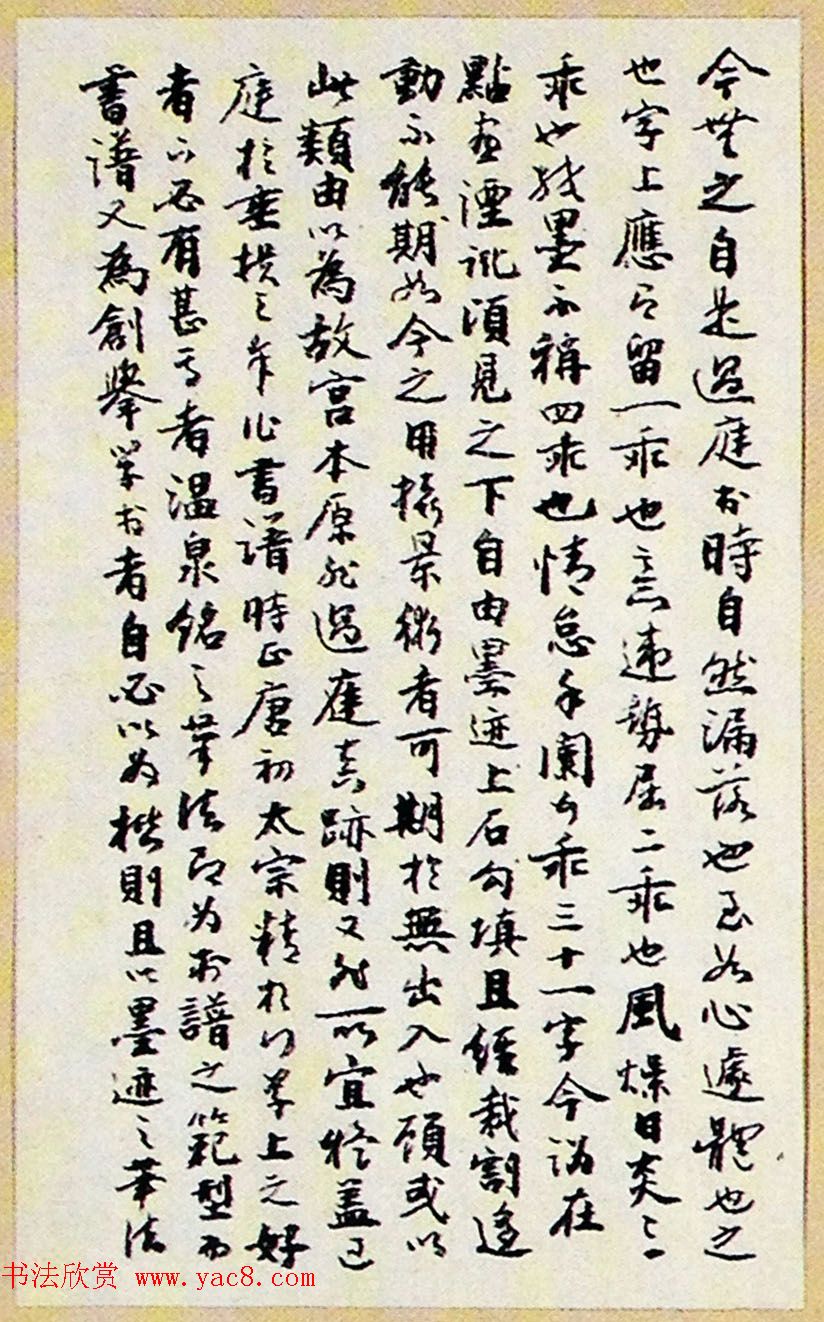 今無之自是過庭書時自然漏落也至如心遽體也之
也字上應有留一乖也意違勢屈二乖也風燥日炎三
乖也紙墨不稱四乖也情怠手闌五乖三十一字今誤在
點畫湮訛須見之下自由墨迹上石勾填且經裁割逢
動不能期如今之用攝景術者可期於無出入也顧或以
此類由以為故宮本原非過庭真跡則又非所宜
庭於垂拱之年作書譜時正唐初太宗精於行草上之好
者下必有甚焉者溫泉銘之筆法即為書譜之範型而
書譜又為創舉學書者自必以為楷則且以墨迹之筆法
书法欣赏 www.yac8.com